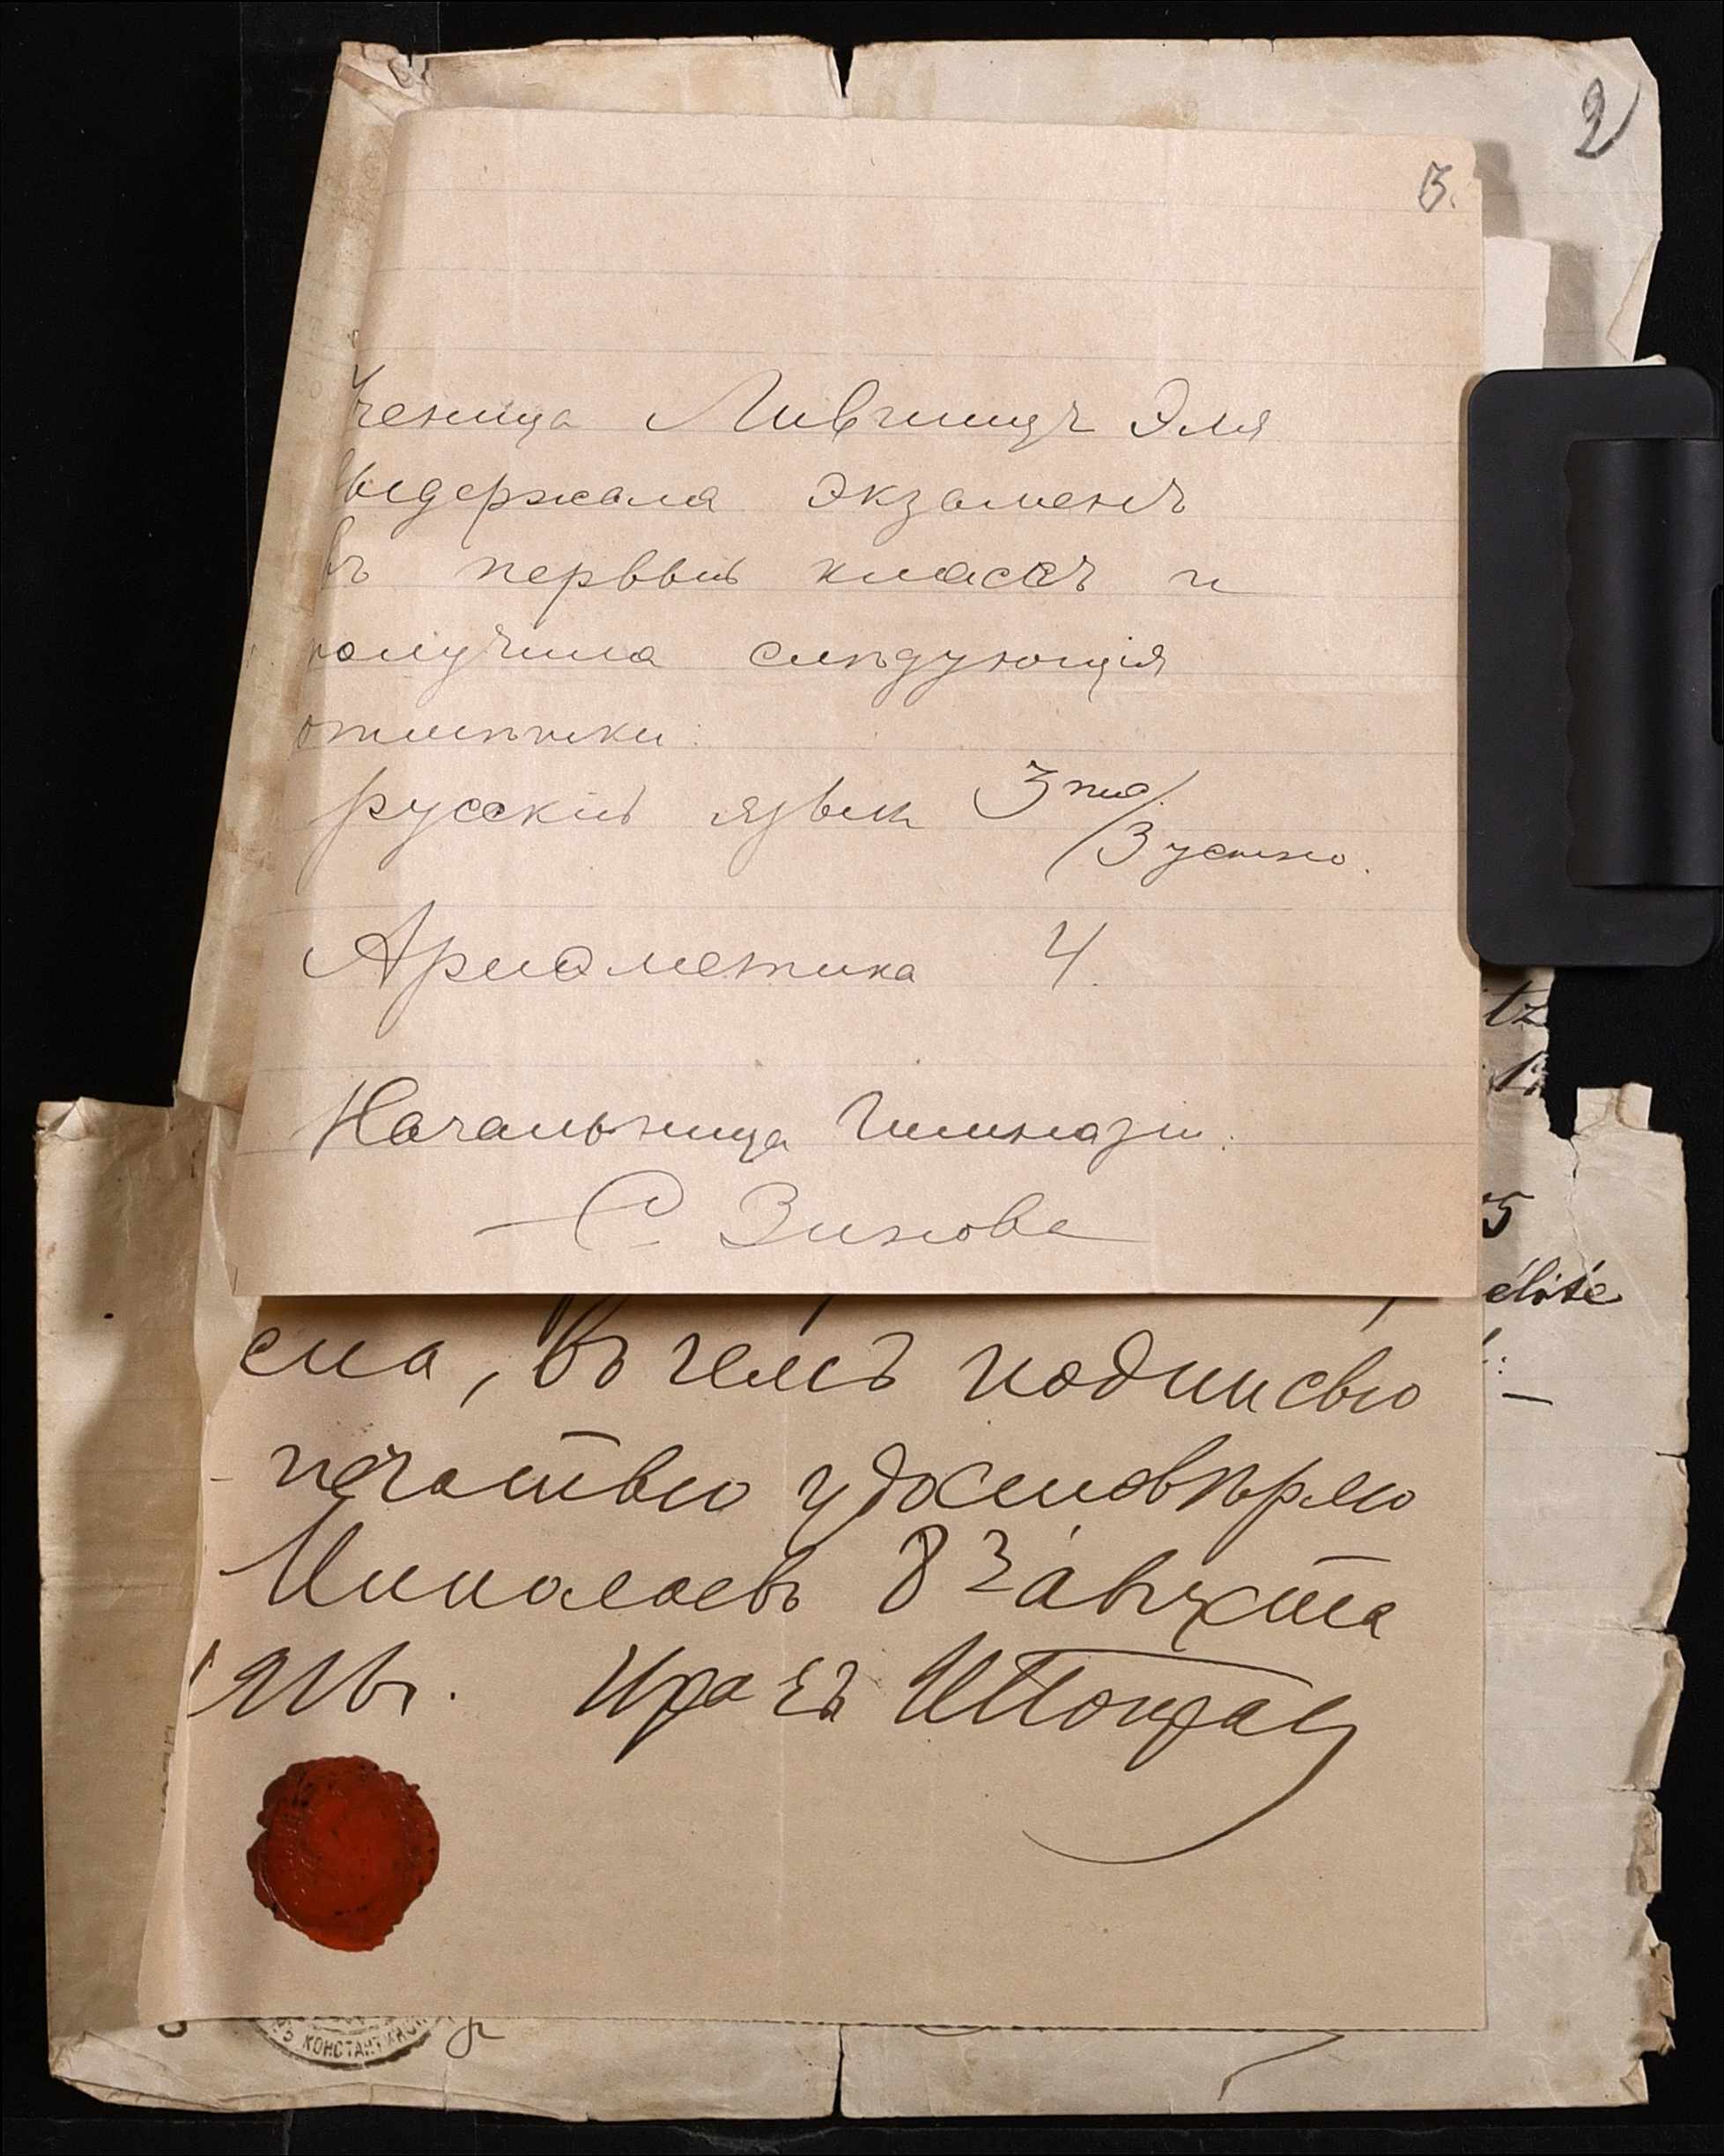 2
3.
Ученица Лившицъ Эля
выдержала экзаменъ
въ первый классъ и
получила слѣдующія
отмѣтки:
русскій языкъ 3 пис./
3 устно.
Ариѳметика 4.
Начальница Гимназіи.
С. Зинова
tz
5
élité
сна, въ чемъ подписью
печатью удостовѣряю
Николаевъ 8 августа
Врачъ
КОНСТАНТИНО